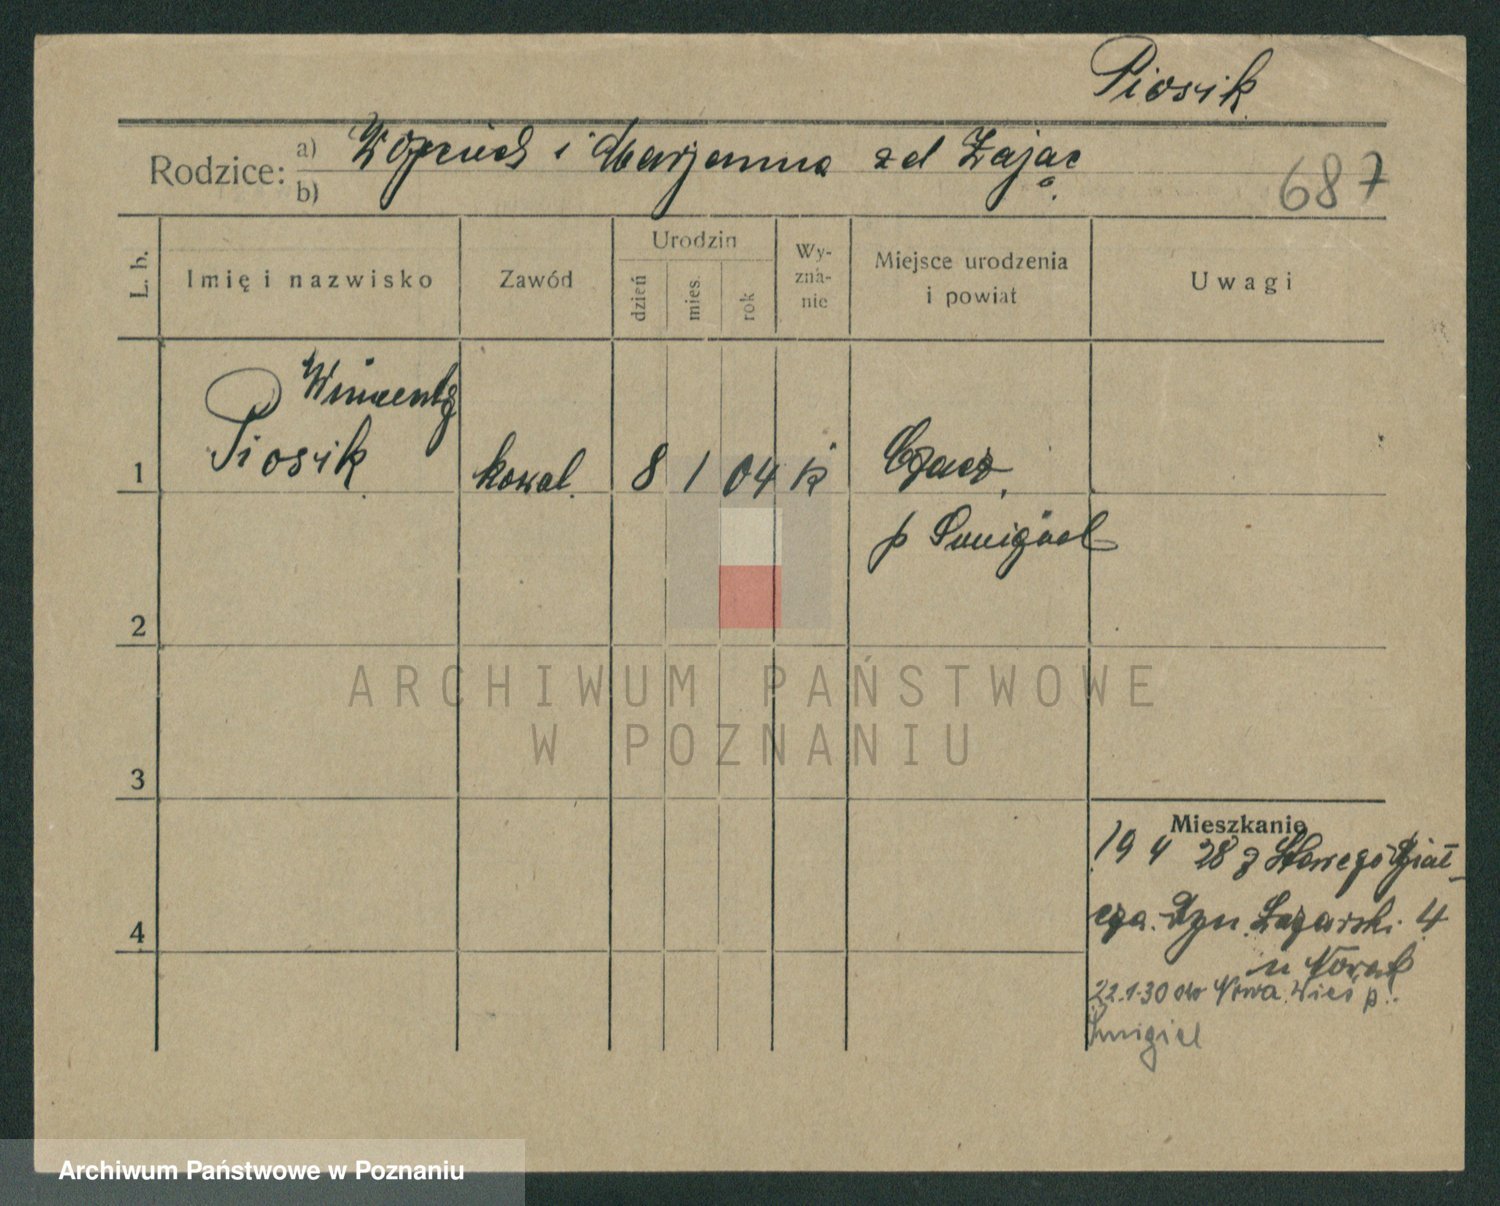 Piosik
Rodzice: a) Wojciech i Marjanna zd Zając
b)
687
L. b.
Imię i nazwisko
Zawód
Urodzin
dzień
mies.
rok
Wy-
zna-
nie
Miejsce urodzenia
i powiat
Uwagi
Wincenty
1 Piosik kowal 8 1 04 k Czacz
p Smigiel
2
3
4
Mieszkanie
19 4 28 z Starego
Ryn. Łazarski 4
u Nowak
22.1.30 do Nowa Wieś p.
Smigiel
ARCHIWUM PAŃSTWOWE
W POZNANIU
Archiwum Państwowe w Poznaniu